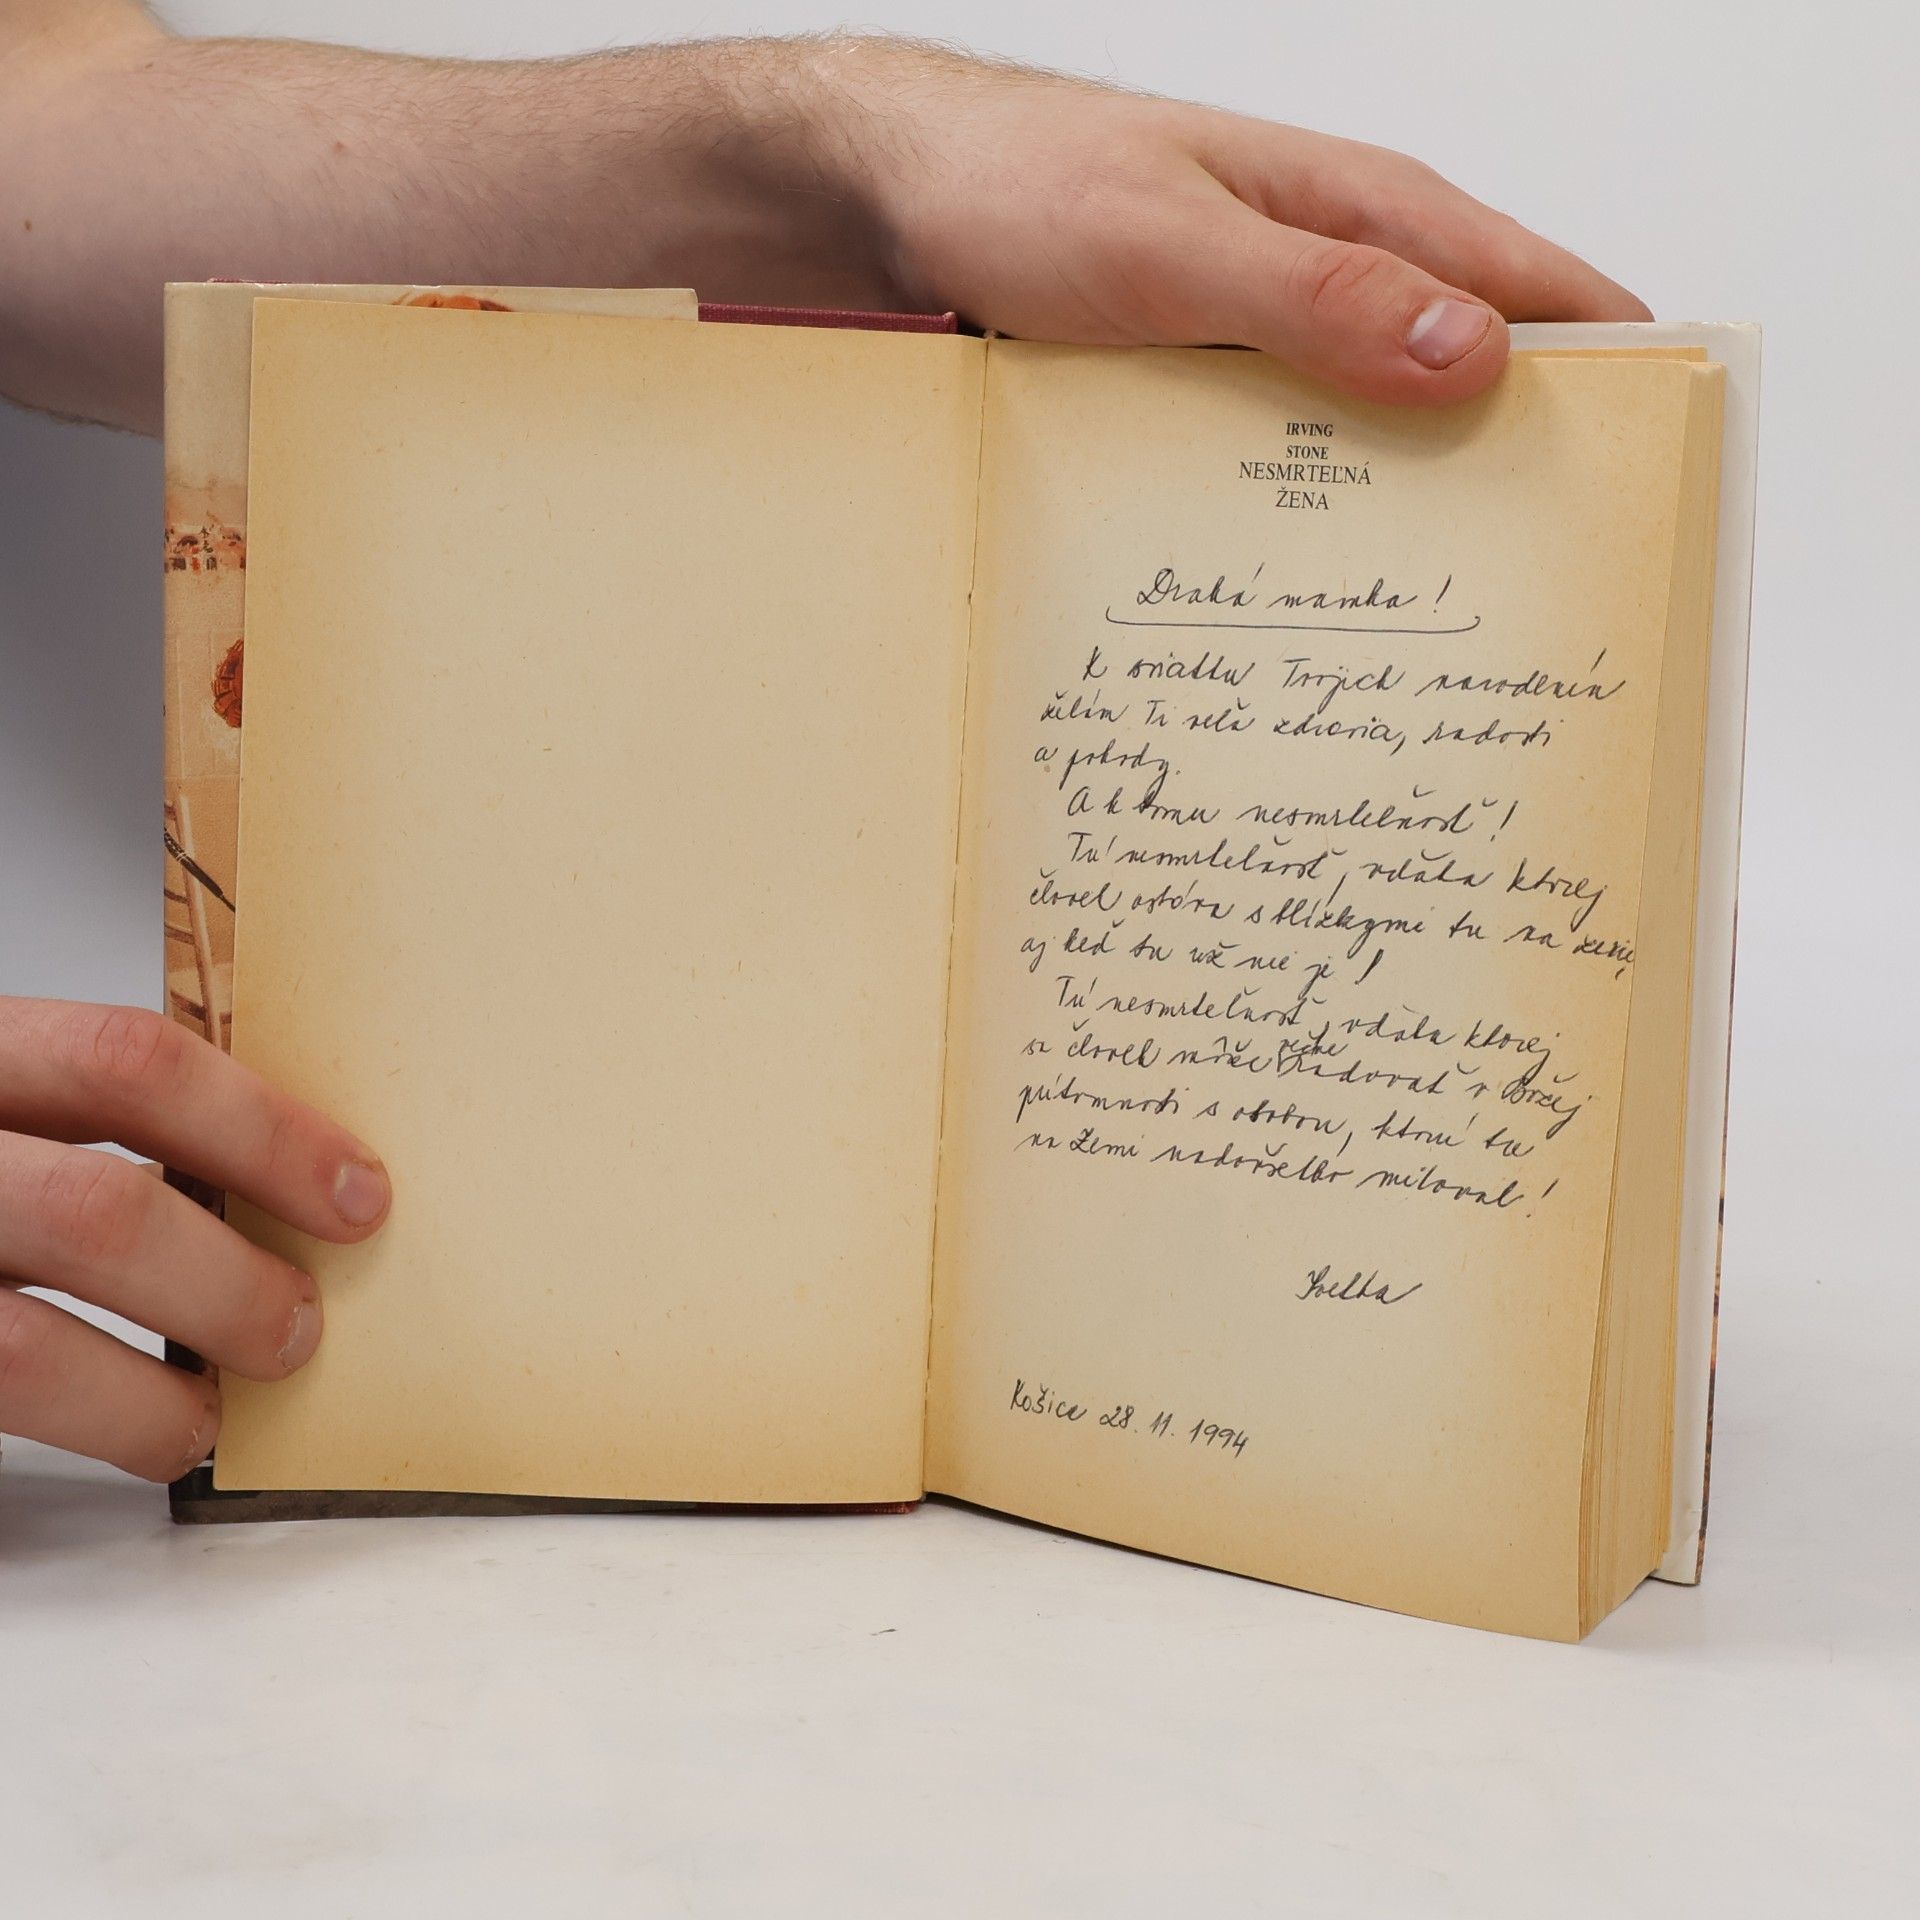 IRVING
STONE
NESMRTEĽNÁ
ŽENA
Drahá mamka!
K sviatku Tvojich narodenín
želám Ti veľa zdravia, radosti
a pohody.
A k tomu nesmrteľnosť!
Tú nesmrteľnosť, vďaka ktorej
človek ostáva s blízkymi tu na zemi,
aj keď tu už nie je!
Tú nesmrteľnosť, vďaka ktorej
sa človek môže večne radovať v Božej
prítomnosti s osobou, ktorú tu
na Zemi nadovšetko miloval!
Svetka
Košice 28. 11. 1994